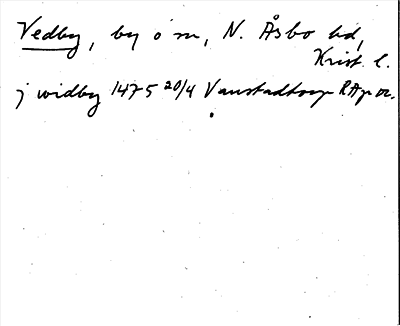 Vedby, by o sn, N. Åsbo hd,
Krist. l.
j widby 1475 20/4 Vanstadtorp RAp or.